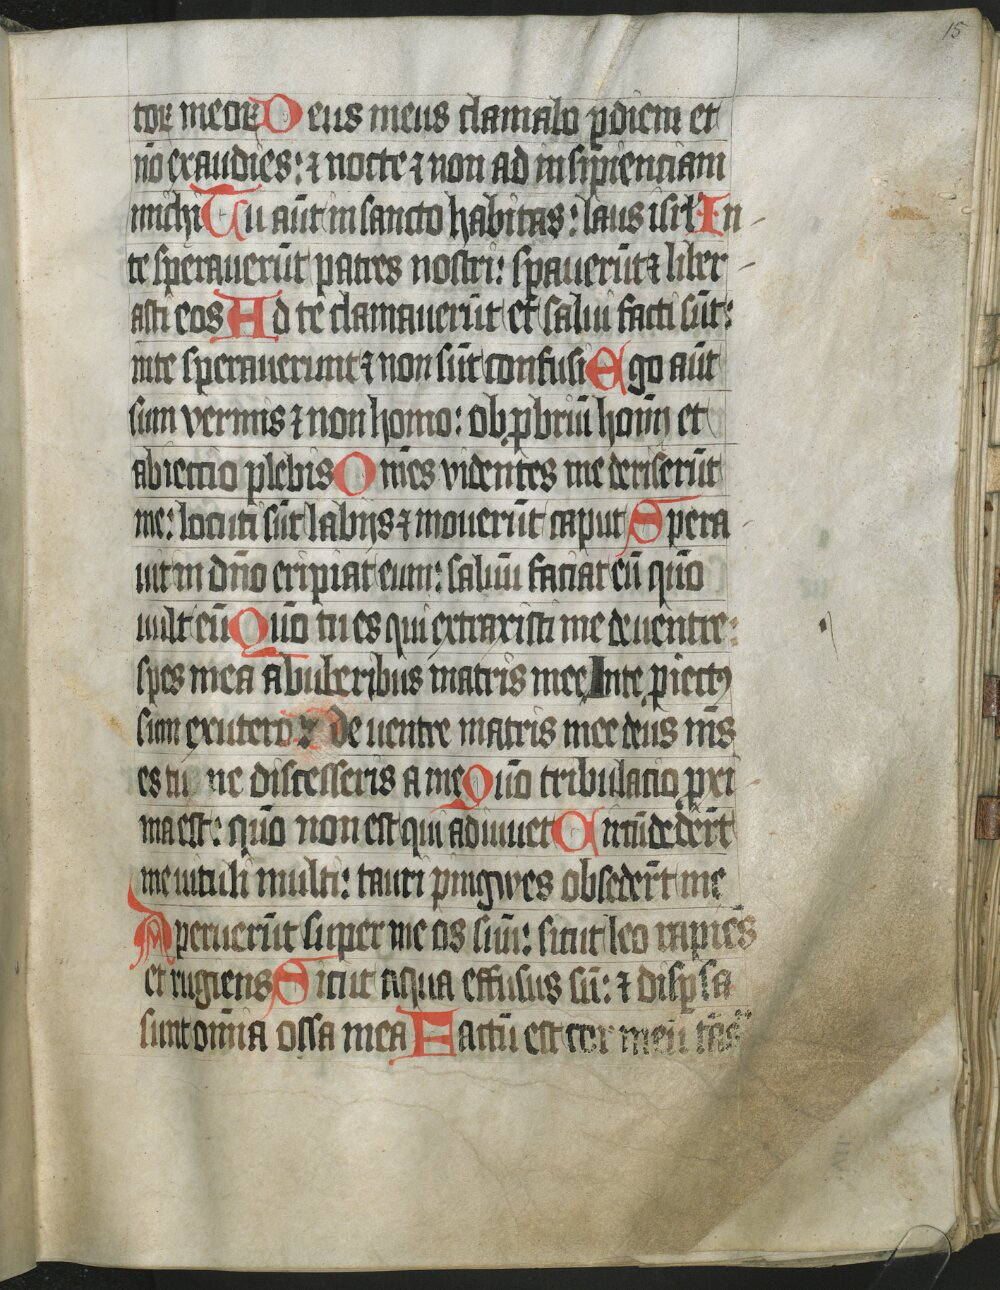 15
tor meor Deus meus clamabo ꝑ diem et
nō exaudies: ⁊ nocte ⁊ non ad insipienciam
michi Tu aūt in sancto habitas: laus isrl̄ In
te sperauerūt patres nostri: sꝑauerūt ⁊ liber
asti eos Ad te clamauerūt et salui facti sūt:
in te sperauerunt ⁊ non sūt confusi Ego aūt
sum vermis ⁊ non homo: obꝓbriū hoīm et
abiectio plebis Om̄es videntes me deriserūt
me: locuti sūt labijs ⁊ mouerūt caput Spera
uit in dn̄o eripiat eum: saluū faciat eū qūo
uult eū Qūo tu es qui extraxisti me de uentre:
spes mea ab uberibus matris mee In te ꝓiectꝰ
sum ex utero: de uentre matris mee deus m̄s
es tu ne discesseris a me Qūo tribulacio ꝓxi
ma est: qūo non est qui adiuuet Circūdeder̄t
me uituli multi: tauri pingwes obseder̄t me
Aperuerūt super me os suū: sicut leo rapiēs
et rugiens Sicut aqua effusus sū: ⁊ disꝑsa
sunt om̄ia ossa mea Factū est cor meū